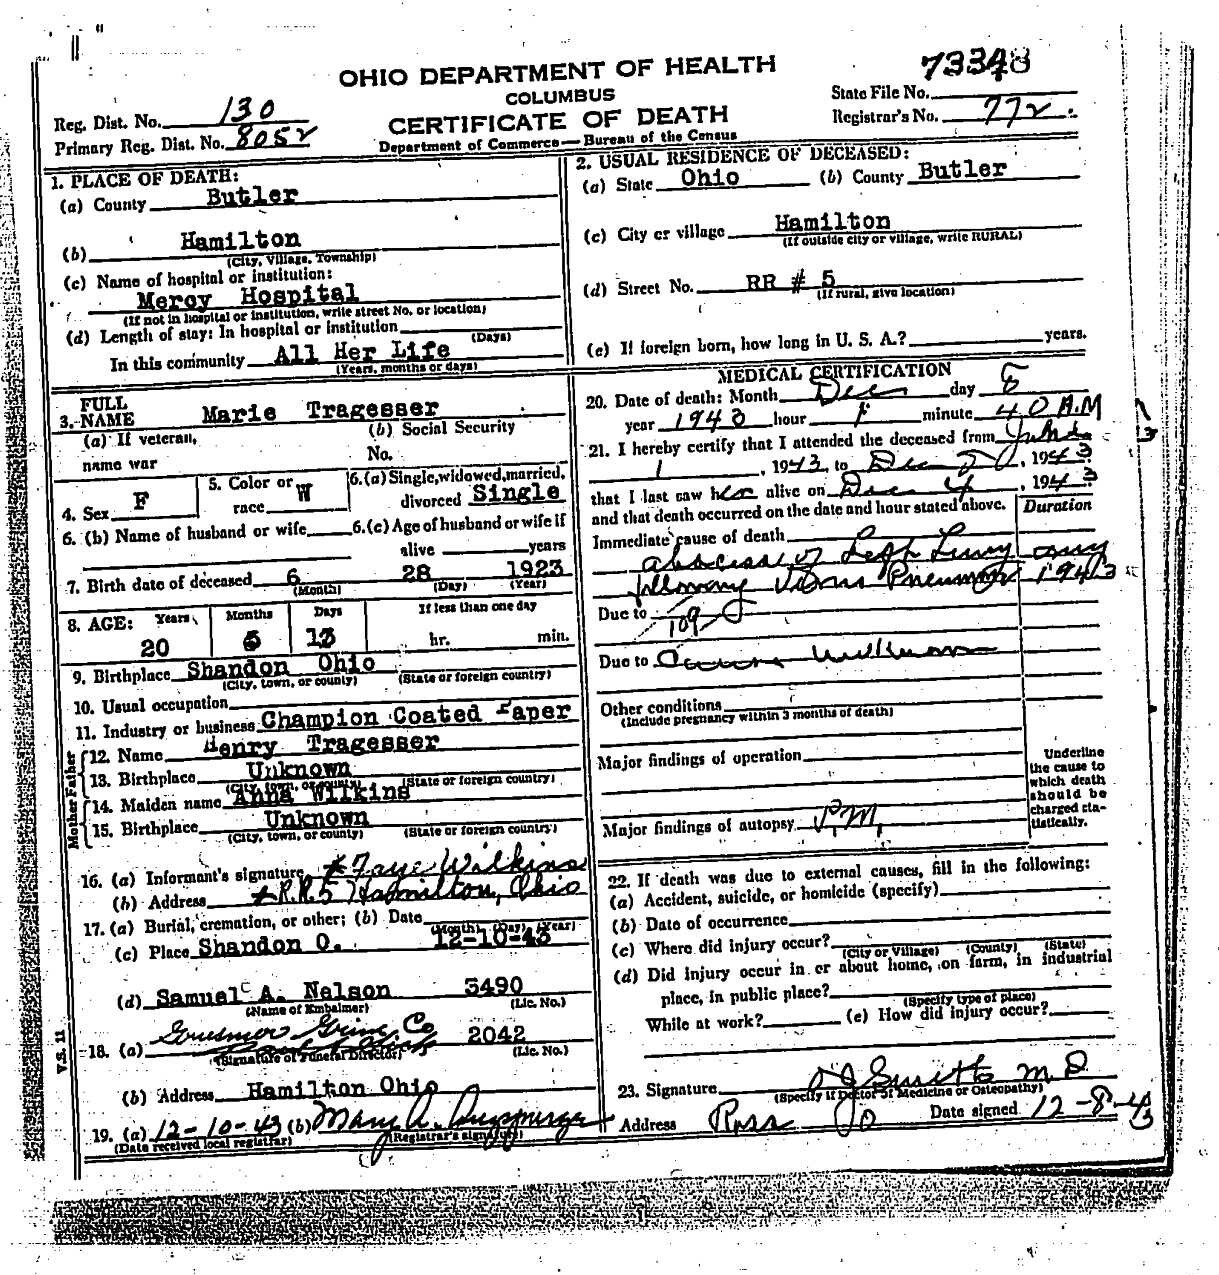 73348
OHIO DEPARTMENT OF HEALTH
COLUMBUS
CERTIFICATE OF DEATH
Department of Commerce—Bureau of the Census
Reg. Dist. No. 130
Primary Reg. Dist. No. 8052
State File No.
Registrar's No. 772
1. PLACE OF DEATH:
(a) County Butler
(b) Hamilton
(City, Village, Township)
(c) Name of hospital or institution:
Mercy Hospital
(If not in hospital or institution, write street No. or location)
(d) Length of stay: In hospital or institution
(Days)
In this community All Her Life
(Years, months or days)
2. USUAL RESIDENCE OF DECEASED:
(a) State Ohio (b) County Butler
(c) City or village Hamilton
(If outside city or village, write RURAL)
(d) Street No. RR # 5
(If rural, give location)
(e) If foreign born, how long in U. S. A.? years.
3. FULL NAME Marie Tragesser
(a) If veteran, name war
(b) Social Security No.
4. Sex F
5. Color or race W
6. (a) Single, widowed, married, divorced Single
6. (b) Name of husband or wife
6. (c) Age of husband or wife if alive years
7. Birth date of deceased 6 28 1923
(Month) (Day) (Year)
8. AGE: Years Months Days If less than one day
20 5 13 hr. min.
9. Birthplace Shandon Ohio
(City, town, or county) (State or foreign country)
10. Usual occupation
11. Industry or business Champion Coated Paper
Father
12. Name Henry Tragesser
13. Birthplace Unknown
(City, town, or county) (State or foreign country)
Mother
14. Maiden name Anna Wilkins
15. Birthplace Unknown
(City, town, or county) (State or foreign country)
16. (a) Informant's signature Faye Wilkins
(b) Address R.R.5 Hamilton, Ohio
17. (a) Burial, cremation, or other; (b) Date
(Month) (Day) (Year)
(c) Place Shandon O. 12-10-43
(d) Samuel A. Nelson 3490
(Name of Embalmer) (Lic. No.)
18. (a) Co 2042
(Signature of Funeral Director) (Lic. No.)
(b) Address Hamilton Ohio
19. (a) 12-10-43 (b) Mary A.
(Date received local registrar) (Registrar's signature)
V.S. 11
MEDICAL CERTIFICATION
20. Date of death: Month Dec day
year 1943 hour minute 40 A.M
21. I hereby certify that I attended the deceased from
1, 1943, to Dec, 1943
that I last saw her alive on Dec 4, 1943
and that death occurred on the date and hour stated above.
Duration
Immediate cause of death
abscess of Left Lung
following Virus Pneumonia 1943
Due to
109
Due to
Other conditions
(Include pregnancy within 3 months of death)
Major findings of operation
Major findings of autopsy P.M.
Underline the cause to which death should be charged statistically.
22. If death was due to external causes, fill in the following:
(a) Accident, suicide, or homicide (specify)
(b) Date of occurrence
(c) Where did injury occur?
(City or Village) (County) (State)
(d) Did injury occur in or about home, on farm, in industrial
place, in public place?
(Specify type of place)
While at work? (e) How did injury occur?
23. Signature M D
(Specify if Doctor of Medicine or Osteopathy)
Address Ross O Date signed 12-8-43